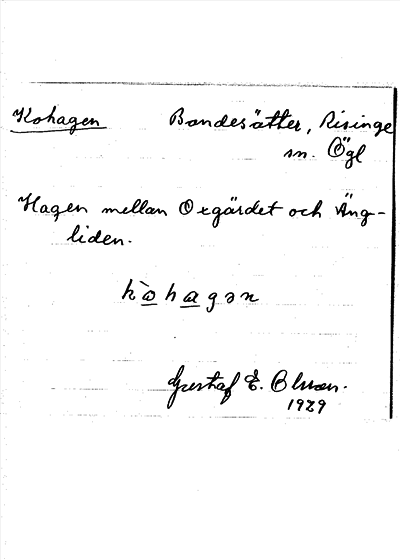 Kohagen Bandesätter, Risinge
sn. Ögl
Hagen mellan Oxgärdet och Äng-
liden.
kò̱ha̱gən
Gustaf E. Olsson.
1929